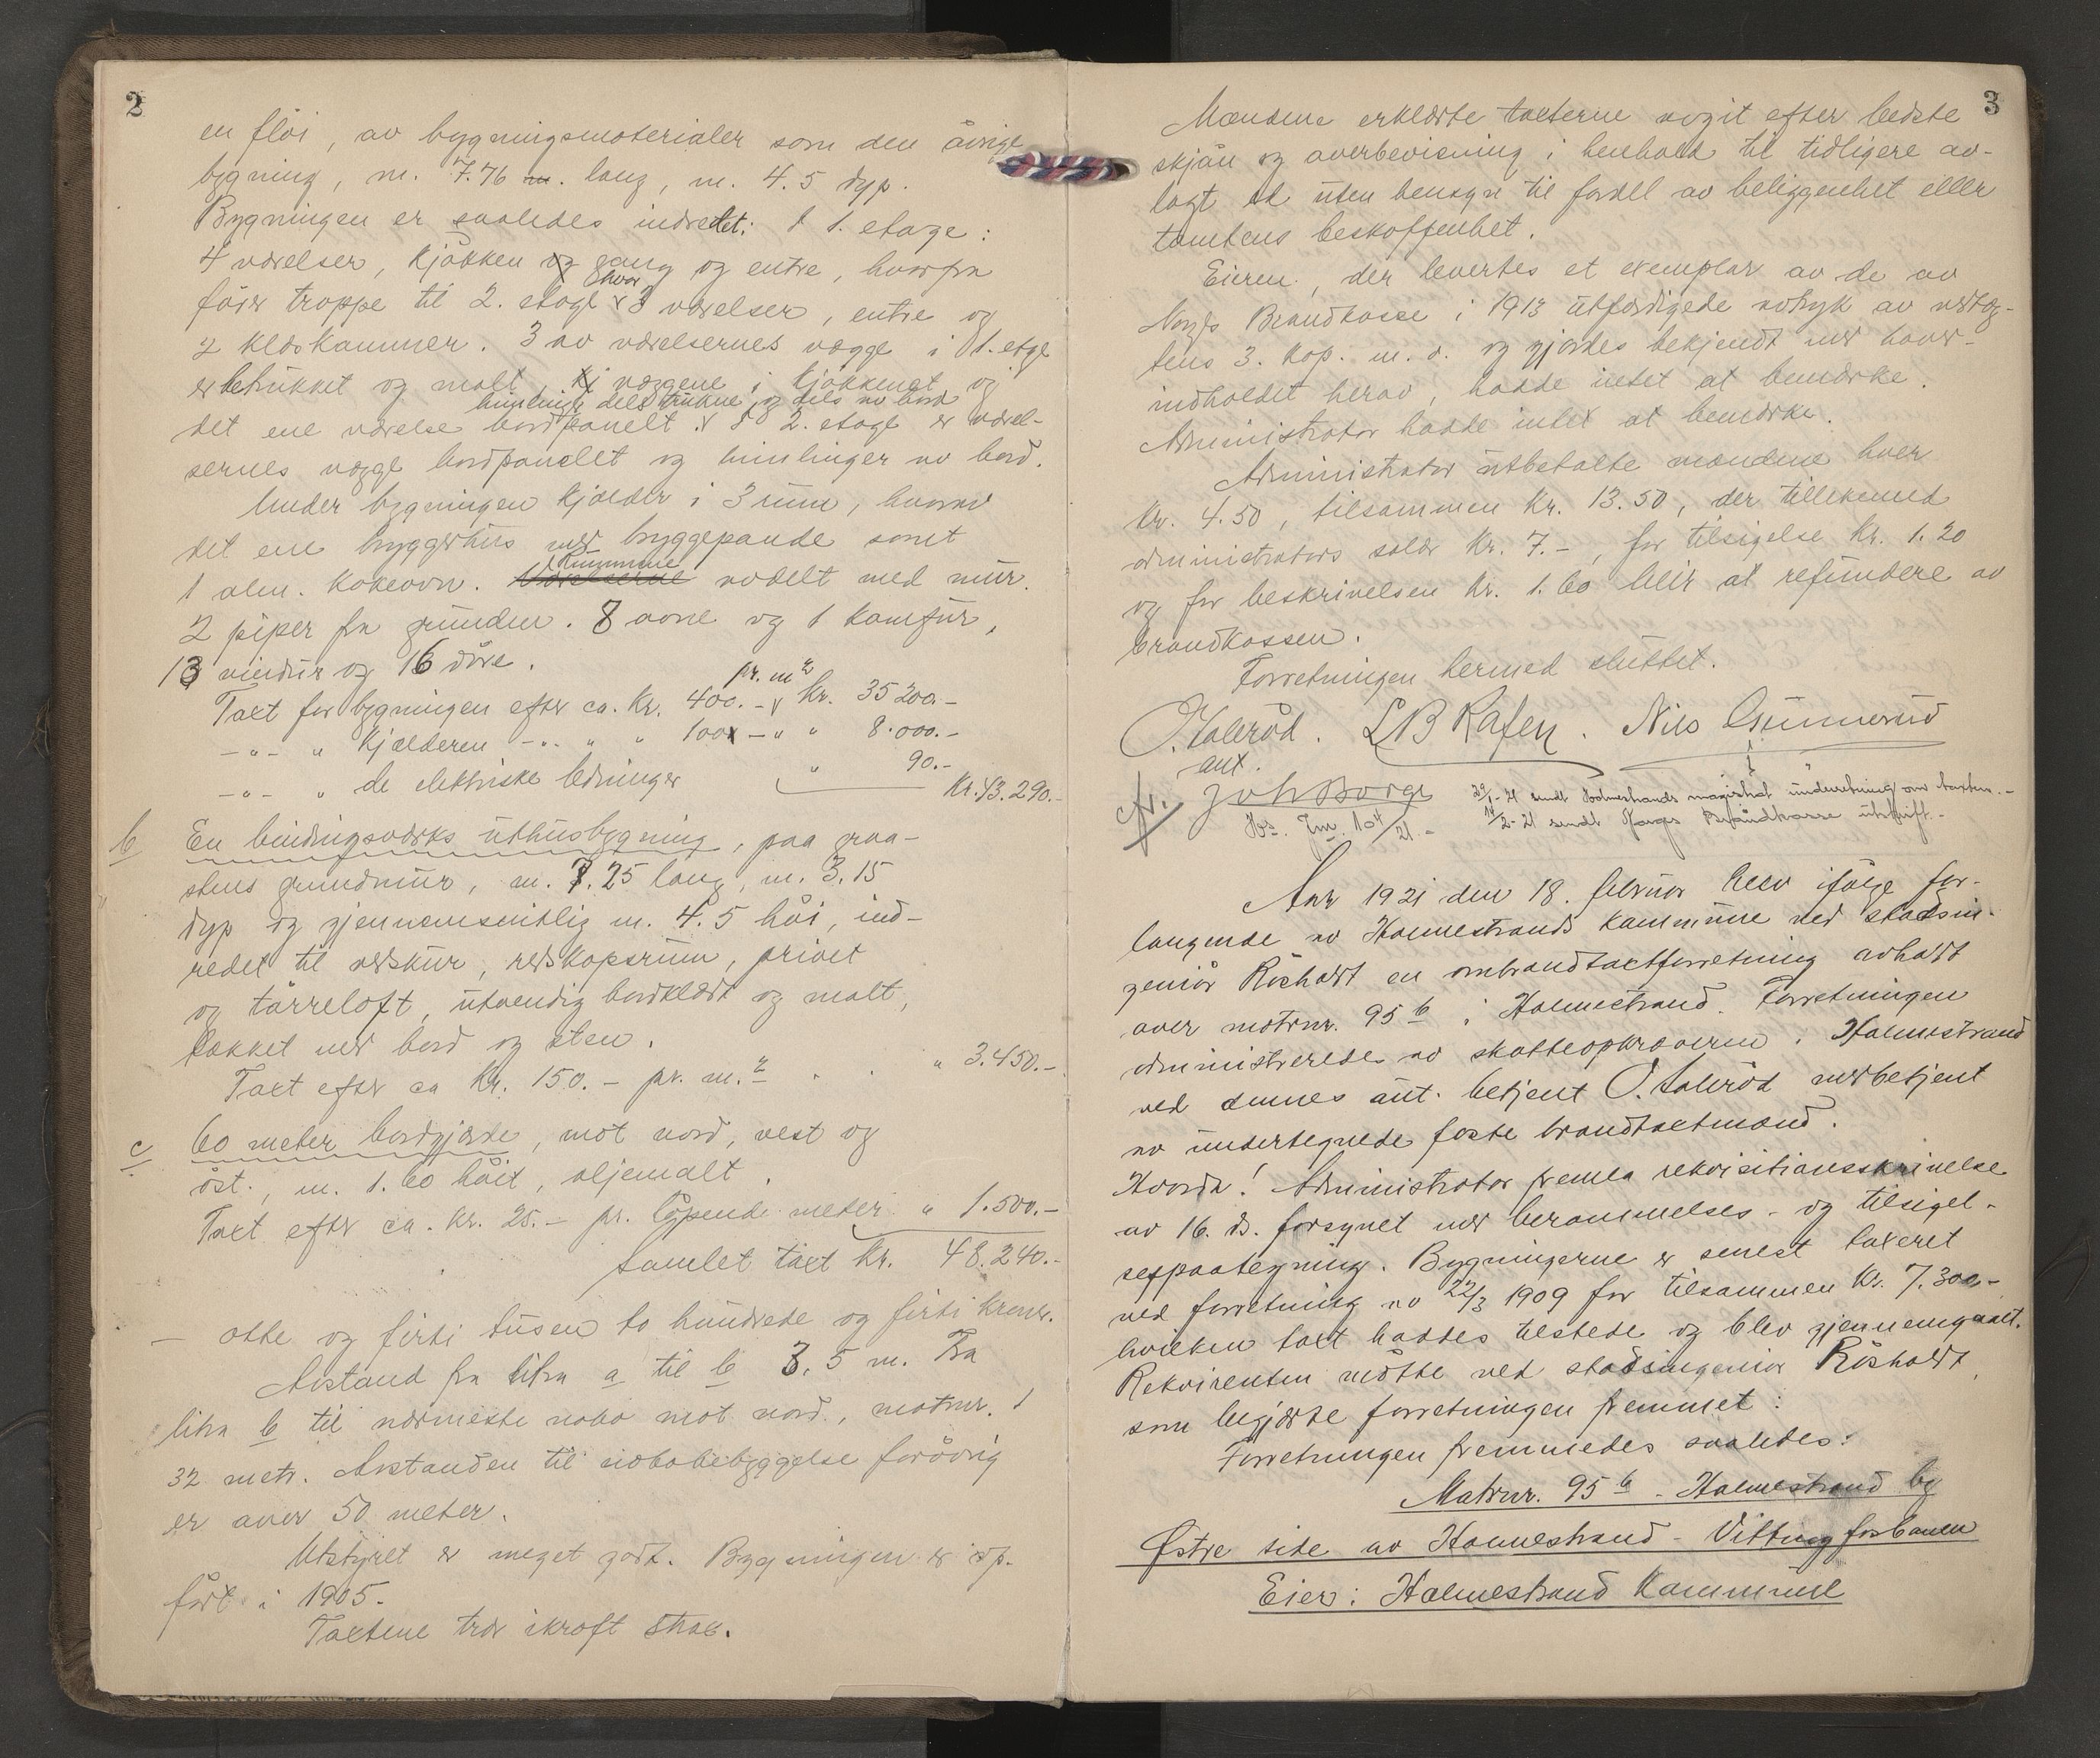 2
en fløi, av bygningsmaterialer som den øvrige
bygning, m. 7.76 m. lang, m. 4.5 dyp.
Bygningen er saaledes indredet: I 1. etage:
4 værelser, kjøkken og gang og entre, hvorfra
fører trappe til 2. etage hvor 3 værelser, entre og
2 klæskammer. 3 av værelsernes vægge i 1. etge
er betrukket og malt, kj væggene i kjøkkenet og
himlinger dels trukne og dels av bord
det ene værelse bordpanelt. I 2. etage er værel-
sernes vægge bordpanelet og himlinger av bord.
Under bygningen kjælder i 3 rum, hvorav
det ene bryggerhus med bryggepande samt
1 alm. kokeovn. Værelserne Rummene avdelt med mur.
2 piper fra grunden. 8 ovne og 1 komfur,
13 vinduer og 16 døre.
Taxt for bygningen efter ca. Kr. 400.- pr. m² Kr. 35200.-
-"- " kjælderen -"- " " 100 - " " 8.000.-
-"- " de elektriske ledninger " 90.-
Kr. 43.290.-
b En bindingsverks uthusbygning, paa graa-
stens grundmur, m. 7.25 lang, m. 3.15
dyp og gjennemsnitlig m. 4.5 høi, ind-
redet til vedskur, redskapsrum, privet
og tørreloft, utvendig bordklædt og malt,
tækket med bord og sten.
Taxt efter ca Kr. 150.- pr. m.² " 3.450.-
c 60 meter bordgjærde, mot nord, vest og
øst., m. 1.60 høit, oljemalt.
Taxt efter ca. Kr. 25.- pr. løpende meter " 1.500.-
Samlet taxt Kr. 48.240.-
— otte og firti tusen to hundrede og firti kroner.
Avstand fra litra a til b 3.5 m. Fra
litra b til nærmeste nabo mot nord, matrnr. 1
32 metr. Avstanden til nabobebyggelse forøvrig
er over 50 meter.
Utstyret er meget godt. Bygningen er op-
ført i 1905.
Taxtene trær ikraft strax.
3
Mændene erklærte taxterne avgit efter bedste
skjøn og overbevisning i henhold til tidligere av-
lagt ed uten hensyn til fordel av beliggenhet eller
tomtens beskaffenhet.
Eieren, der levertes et exemplar av de av
Norges Brandkasse i 1913 utfærdigede avtryk av vedtæg-
tens 3. kap. m. v. og gjordes bekjendt med hoved-
indholdet herav, hadde intet at bemærke.
Administrator hadde intet at bemærke.
Administrator utbetalte mændene hver
Kr. 4.50, tilsammen Kr. 13.50, der tillikemed
administrators salær Kr. 7.-, for tilsigelse Kr. 1.20
og for beskrivelsen Kr. 1.60 blir at refundere av
brandkassen.
Forretningen hermed sluttet.
O. Solerød. L B Rafen. Nils Gunnerud
aut.
Joh Borge
29/1-21 sendt Holmestrands magistrat underretning om taxten.-
14/2-21 sendt Norges Brandkasse utskrift.-
Aar 1921 den 18. februar blev ifølge for-
langende av Holmestrands kommune ved stadsin-
geniør Røsholdt en ombrandtaxtforretning avholdt
over matrnr. 95 b i Holmestrand. Forretningen
administreredes av skatteopkræveren i Holmestrand
ved dennes aut. betjent O. Solerød medbetjent
av undertegnede faste brandtaxtmænd.
Hvorda! Administrator fremla rekvisitionsskrivelse
av 16. ds. forsynet med berammelses- og tilsigel-
sespaategning. Bygningerne er senest taxeret
ved forretning av 22/3 1909 for tilsammen Kr. 7.300.-
hvilken taxt haddes tilstede og blev gjennemgaaet.
Rekvirenten møtte ved stadsingeniør Røsholdt,
som begjærte forretningen fremmet:
Forretningen fremmedes saaledes:
Matrnr. 95 b - Holmestrand by
Østre side av Holmestrand - Vittingfosbanen
Eier: Holmestrand Kommune